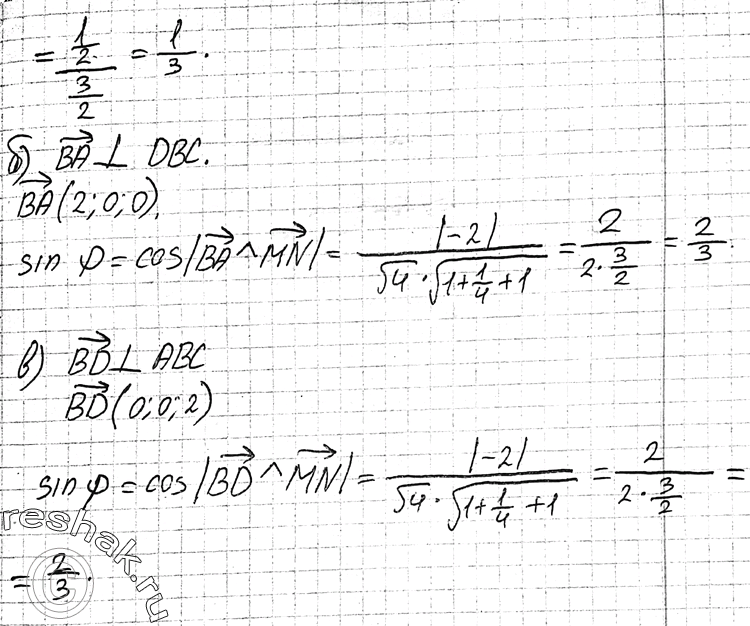 = 1/2 / 3/2 = 1/3.
б) BA⃗ ⊥ DBC.
BA⃗ (2; 0; 0).
sin φ = cos|BA⃗ ^ MN⃗| = |-2| / (√4 · √(1+1/4+1)) = 2 / (2 · 3/2) = 2/3.
в) BD⃗ ⊥ ABC
BD⃗ (0; 0; 2)
sin φ = cos|BD⃗ ^ MN⃗| = |-2| / (√4 · √(1+1/4+1)) = 2 / (2 · 3/2) =
= 2/3.
reshak.ru